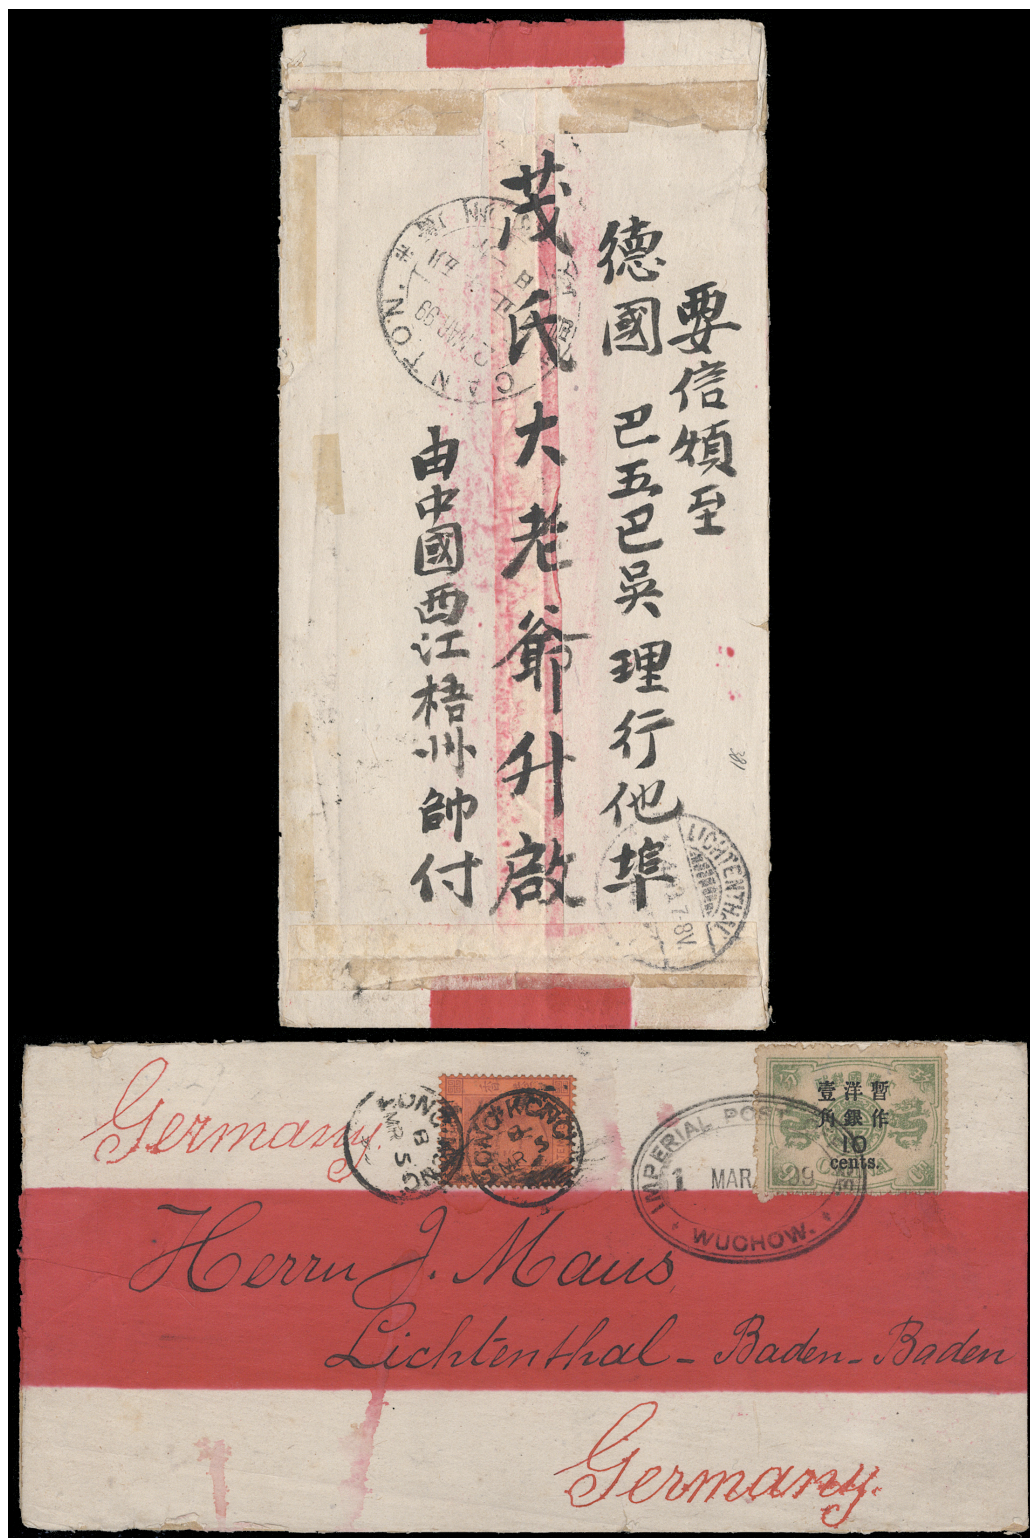 要信煩至
德國 巴五巴吳理行他埠
茂氏大老爺升啟
由中國西江梧州帥付
CANTON.
MAR 99
LICHTENTHAL
7-8V.
381
Germany.
HONG KONG
B
MR 5
HONG KONG
MR 5
IMPERIAL POST
1 MAR 99
WUCHOW.
暫作
洋銀
壹角
10
cents.
Herrn J. Maus
Lichtenthal - Baden - Baden
Germany.